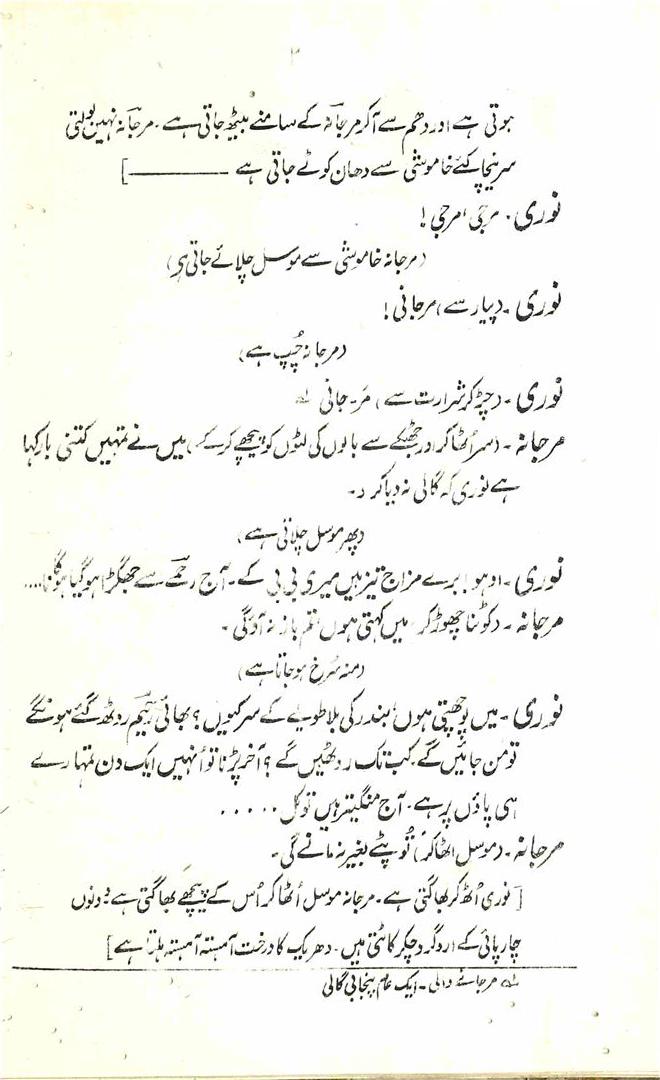 ۲
ہوتی ہے اور دھم سے آکر مرجانہ کے سامنے بیٹھ جاتی ہے۔ مرجانہ نہیں بولتی
سر نیچا کئے خاموشی سے دھان کوٹے جاتی ہے ــــــــــــ]
نوری۔ مرجی، مرجی!
(مرجانہ خاموشی سے موسل چلائے جاتی ہے)
نوری۔ (پیار سے) مرجانی!
(مرجانہ چُپ ہے)
نوری۔ (چڑ کر شرارت سے) مَر۔جانی لہ
مرجانہ۔ (سر اُٹھا کر اور جھٹکے سے بالوں کی لٹوں کو پیچھے کر کے) میں نے تمہیں کتنی بار کہا
ہے نوری کہ گالی نہ دیا کرو۔
(پھر موسل چلاتی ہے)
نوری۔ اوہو! بڑے مزاج تیز ہیں میری بی بی کے۔ آج رحمے سے جھگڑا ہو گیا ہوگا نا....
مرجانہ۔ (کوٹنا چھوڑ کر) میں کہتی ہوں تم باز نہ آؤ گی۔
(منہ سُرخ ہو جاتا ہے)
نوری۔ میں پوچھتی ہوں بندر کی بلا طویلے کے سر کیوں؟ بھائی رحیم روٹھ گئے ہونگے
تو من جائیں گے۔ کب تک روٹھیں گے؟ آخر پڑنا تو اُنہیں ایک دن تمہارے
ہی پاؤں پر ہے۔ آج منگیتر ہیں تو کل .....
مرجانہ۔ (موسل اٹھا کر) تُو پٹے بغیر نہ مانے گی۔
[نوری اُٹھ کر بھاگتی ہے۔ مرجانہ موسل اُٹھا کر اُس کے پیچھے بھاگتی ہے۔ دونوں
چارپائی کے اردگرد چکر کاٹتی ہیں۔ دھریک کا درخت آہستہ آہستہ ہلتا ہے]
لہ مر جانے والی۔ ایک عام پنجابی گالی